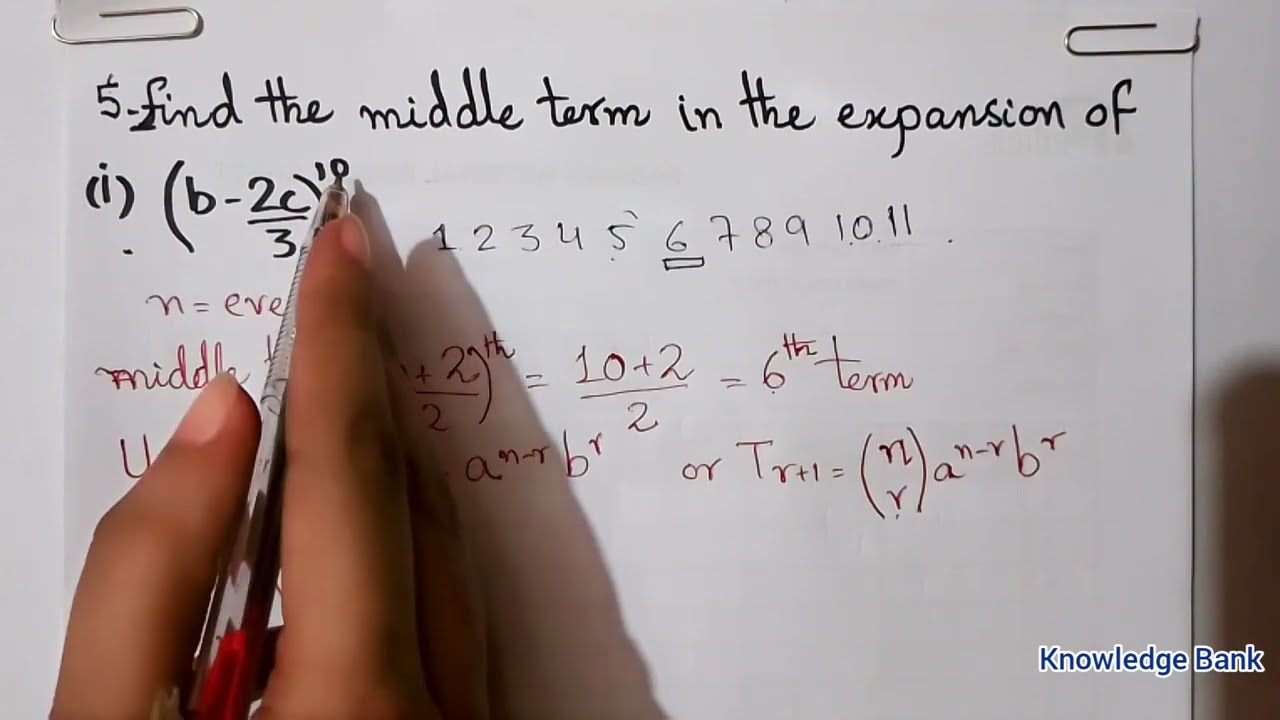 5-find the middle term in the expansion of
(i) (b - 2c/3)^10
1 2 3 4 5 6 7 8 9 10 11
n = eve
middle + 2/2)^th = 10+2/2 = 6^th term
U a^n-r b^r or T_r+1 = (n r) a^n-r b^r
Knowledge Bank